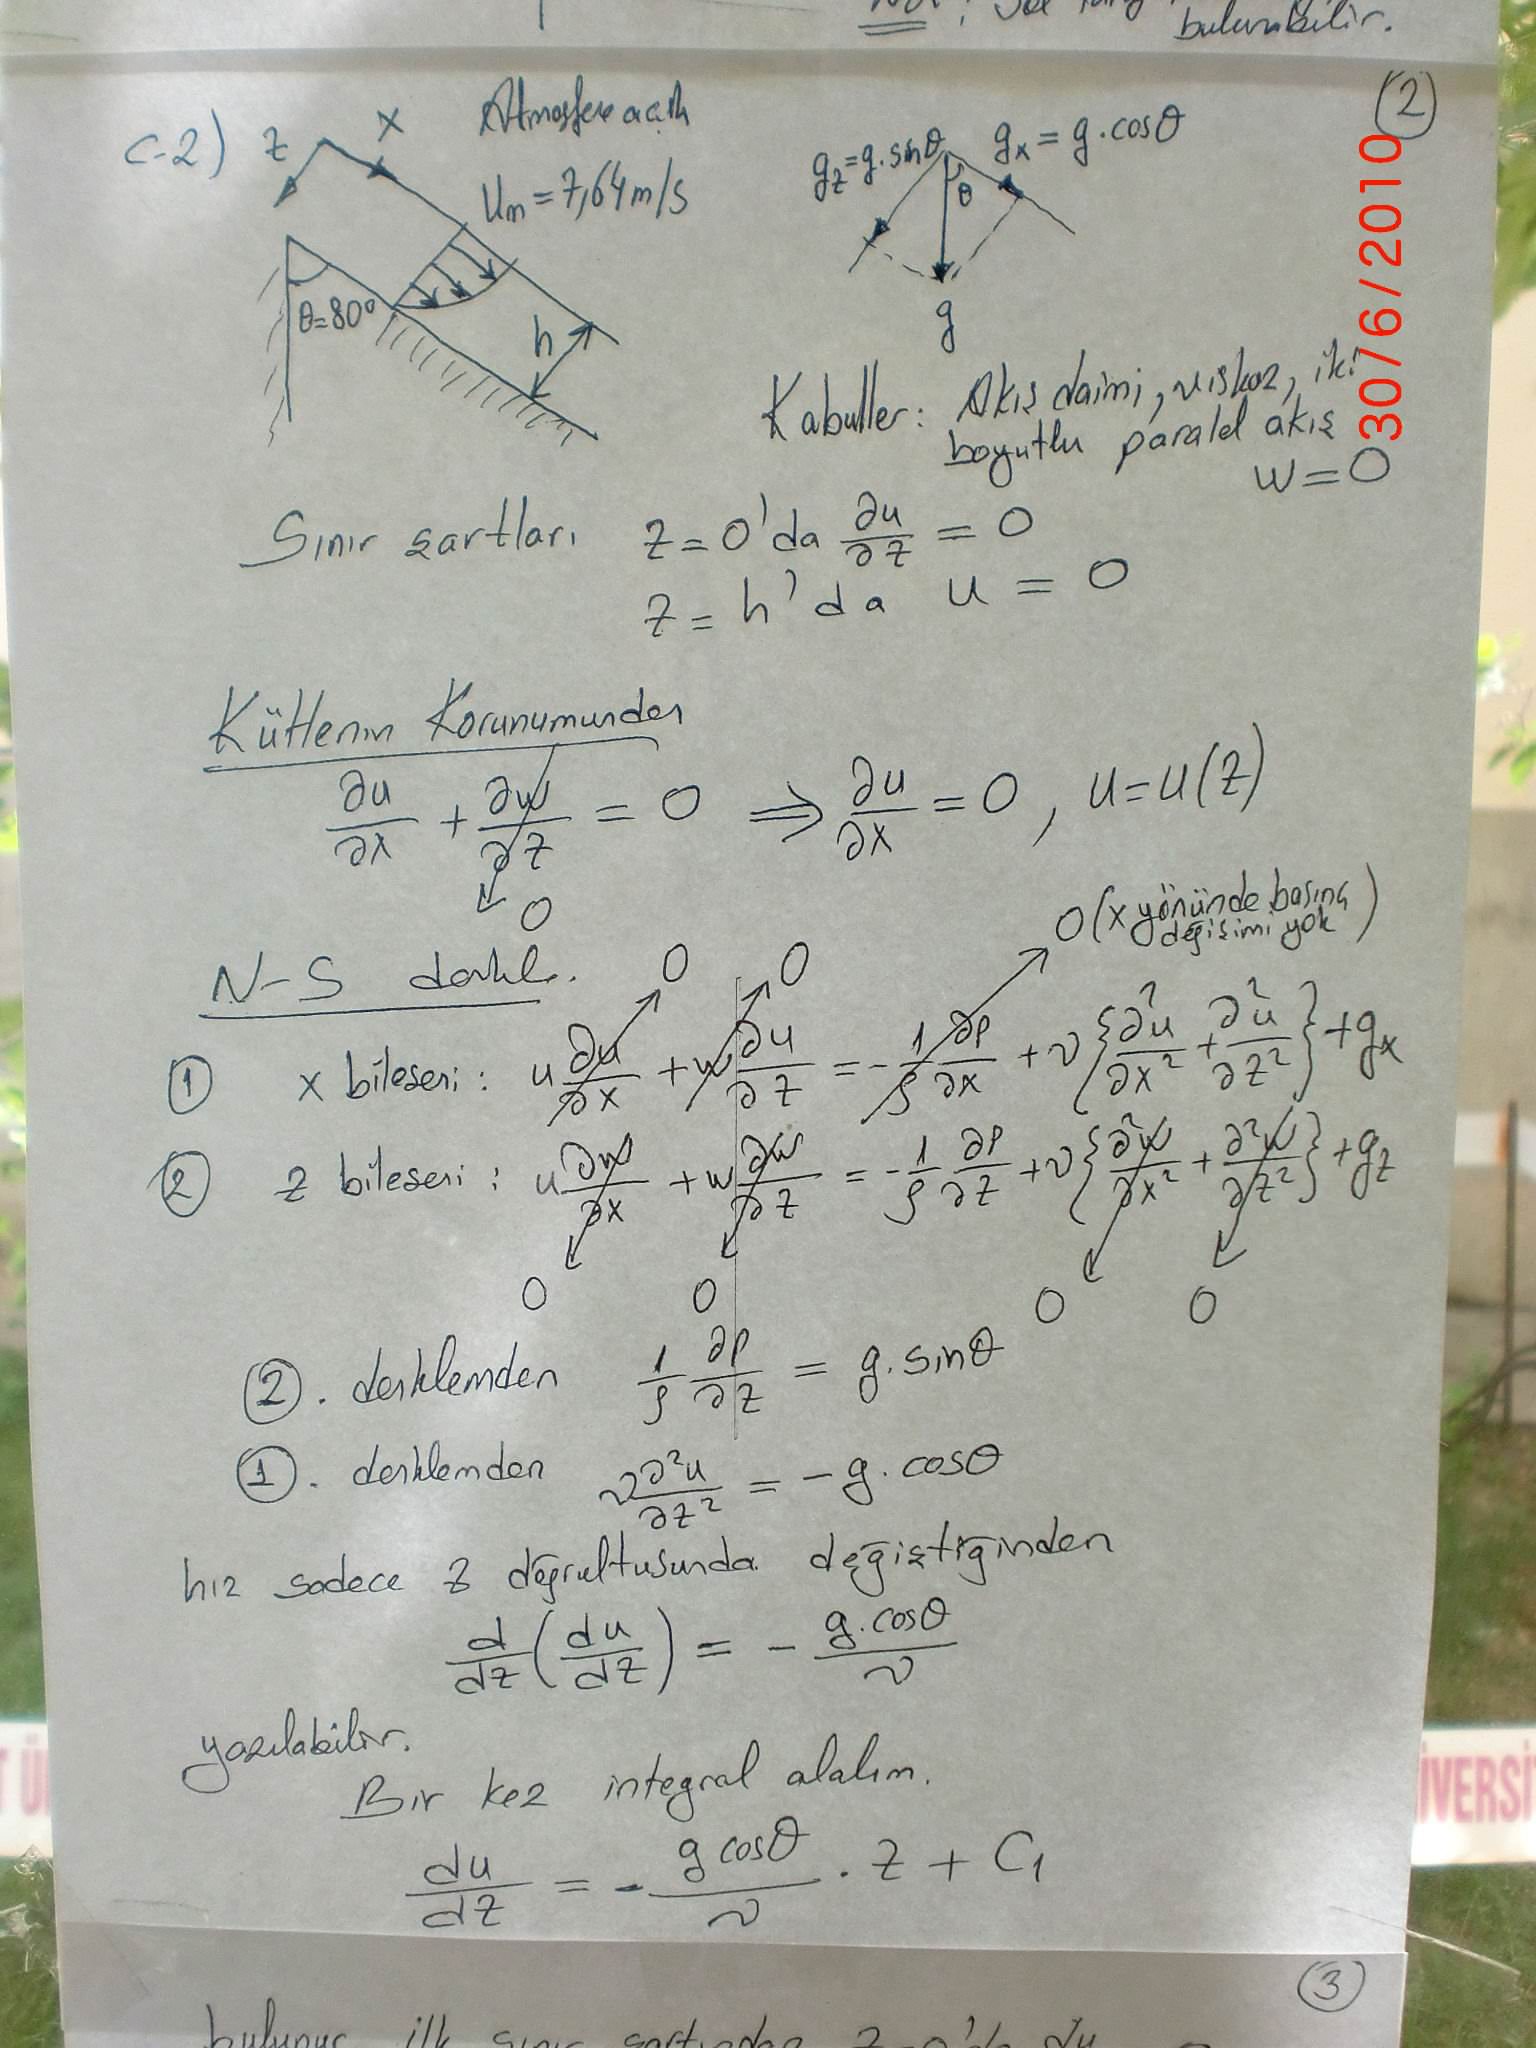 bulunabilir.
2
C-2) z x Atmosfere açık
Um = 7,64 m/s
θ=80°
h
gz = g.sinθ gx = g.cosθ
θ
g
30/6/2010
Kabuller: Akış daimi, viskoz, iki
boyutlu paralel akış
w = 0
Sınır şartları z = 0'da ∂u/∂z = 0
z = h'da u = 0
Kütlenin Korunumundan
∂u/∂x + ∂w/∂z = 0 ⇒ ∂u/∂x = 0, u = u(z)
0
0 (x yönünde basınç
değişimi yok)
N-S denkl. 0 0
① x bileşeni: u ∂u/∂x + w ∂u/∂z = -1/ρ ∂p/∂x + ν{∂²u/∂x² + ∂²u/∂z²} + gx
② z bileşeni: u ∂w/∂x + w ∂w/∂z = -1/ρ ∂p/∂z + ν{∂²w/∂x² + ∂²w/∂z²} + gz
0 0 0 0
②. denklemden 1/ρ ∂p/∂z = g.sinθ
①. denklemden ν ∂²u/∂z² = -g.cosθ
hız sadece z doğrultusunda değiştiğinden
d/dz (du/dz) = - g.cosθ/ν
yazılabilir.
Bir kez integral alalım.
du/dz = - g cosθ/ν . z + C1
3
bulunur ilk sınır şartından z=0'da du
İVERSİ